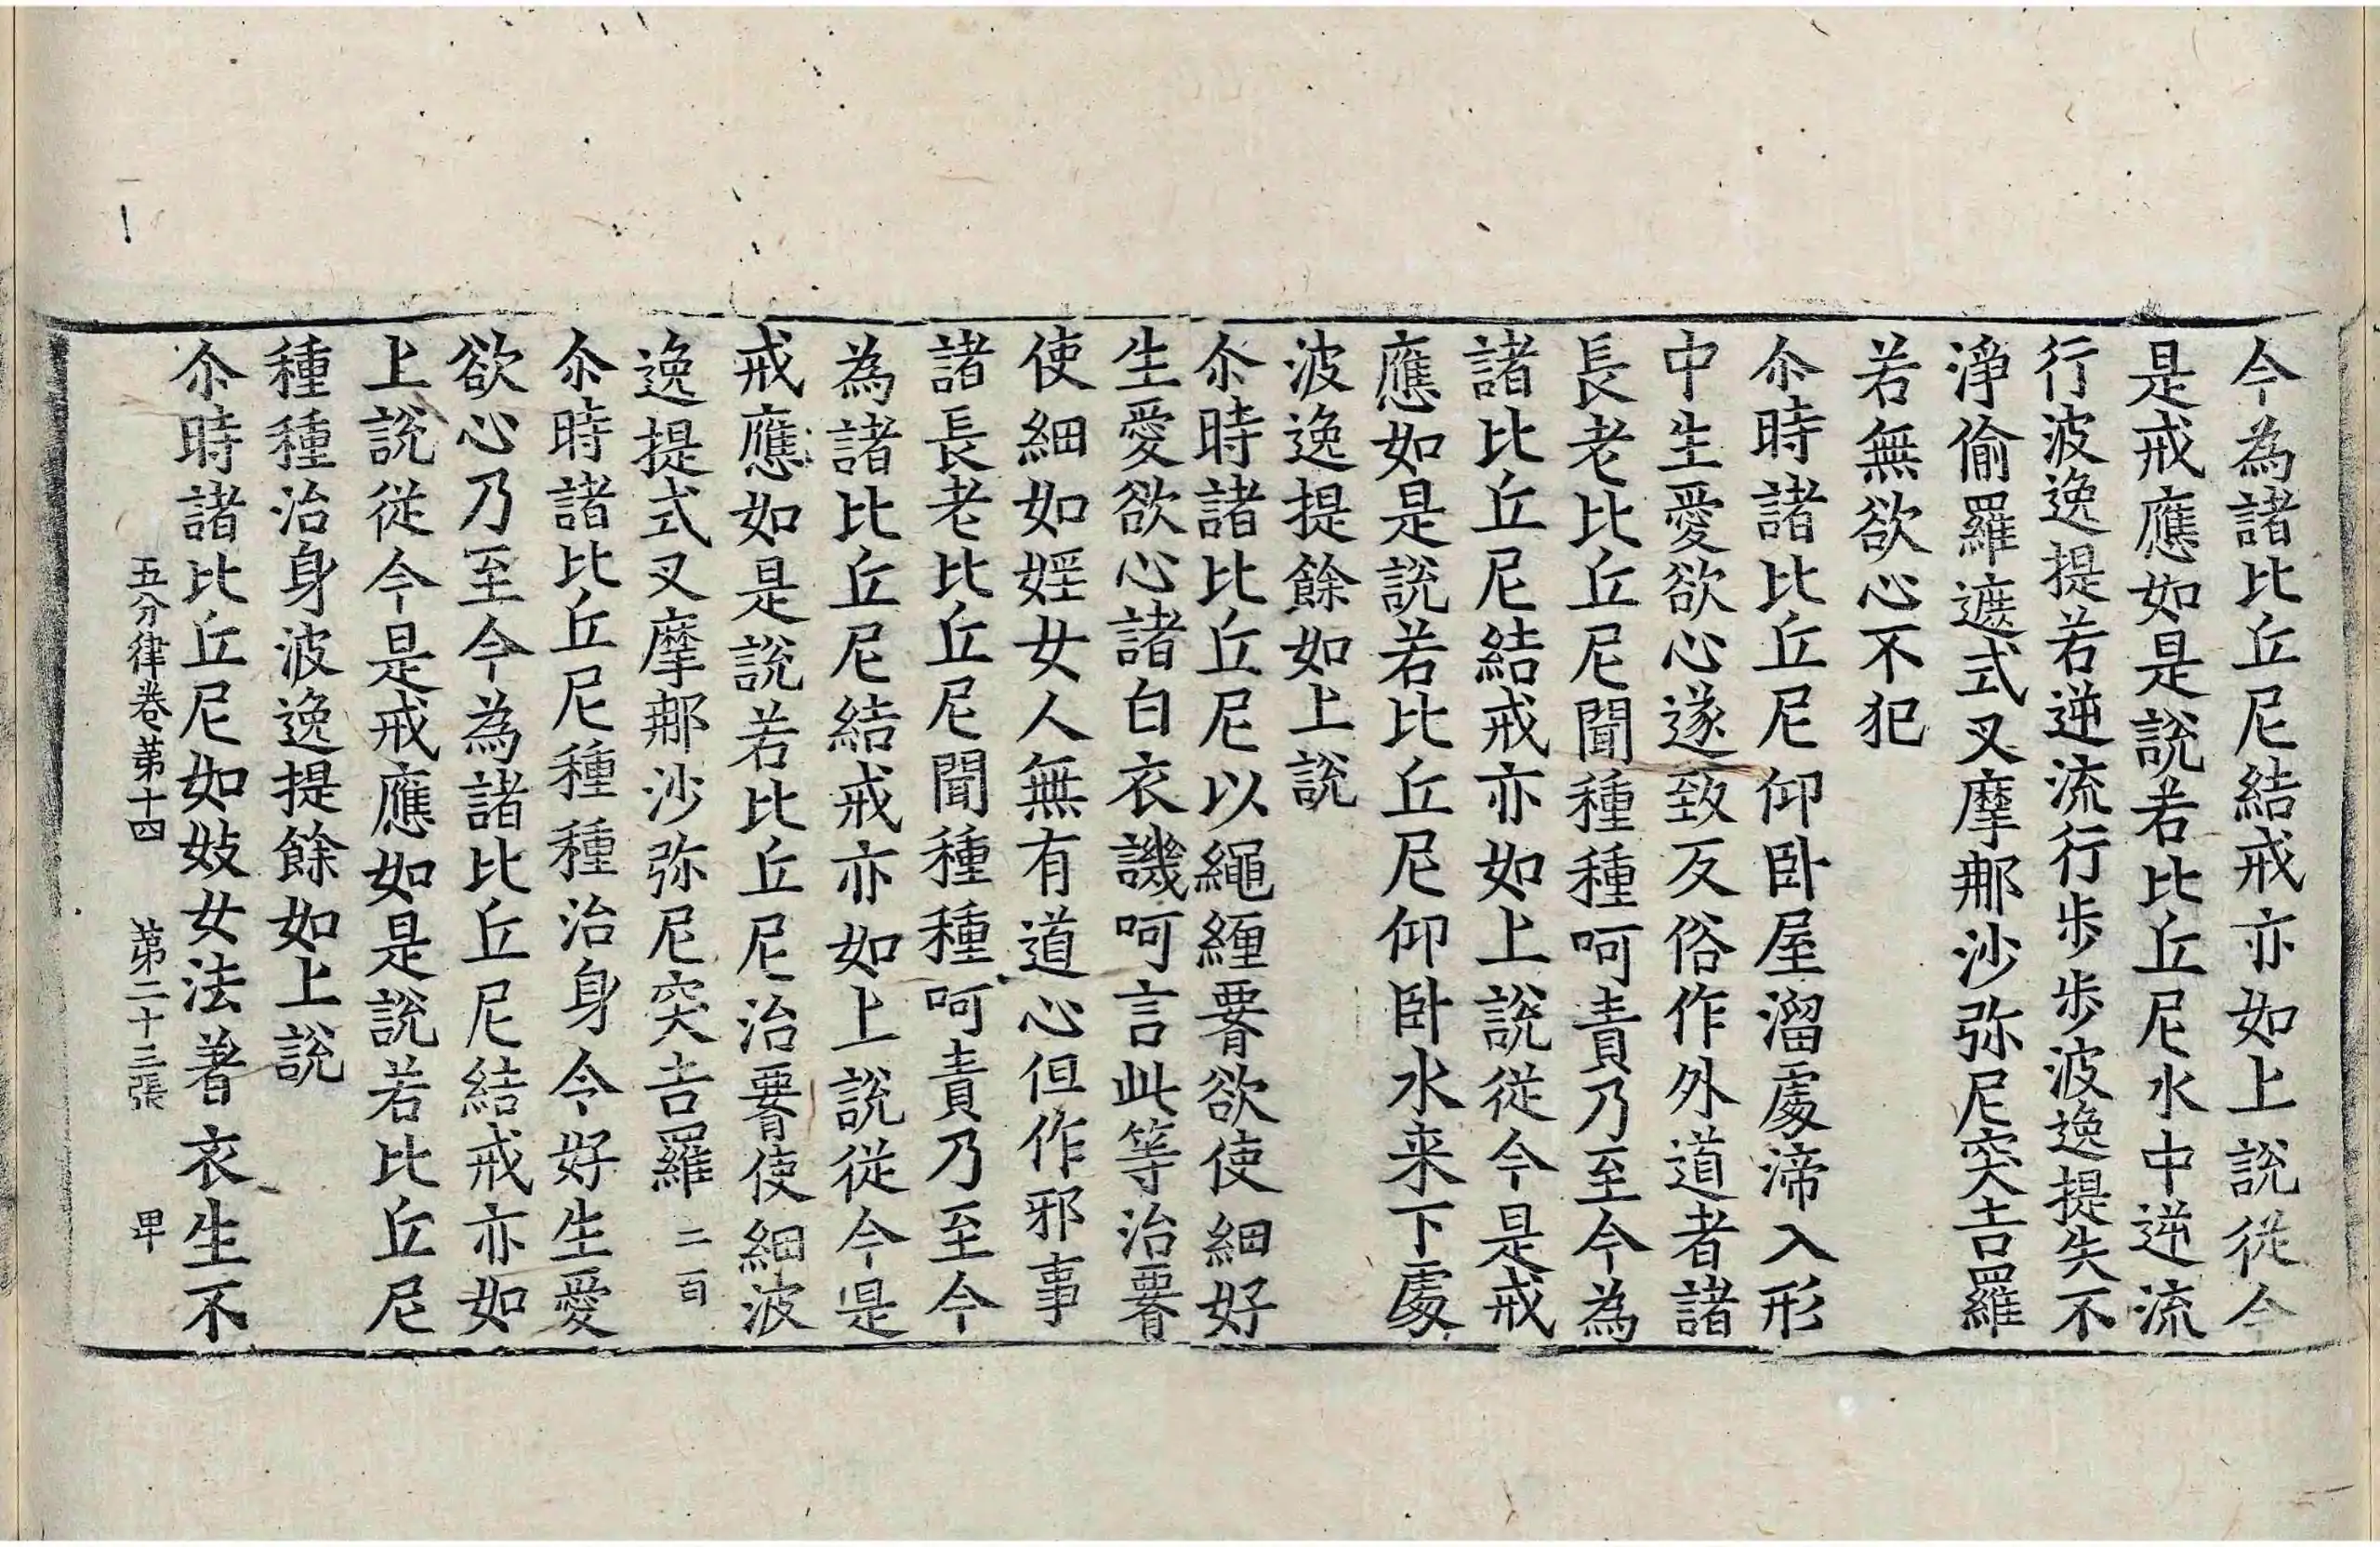 今為諸比丘尼結戒亦如上說從今
是戒應如是說若比丘尼水中逆流
行波逸提若逆流行步步波逸提失不
淨偷羅遮式叉摩那沙弥尼突吉羅
若無欲心不犯
尒時諸比丘尼仰卧屋溜處渧入形
中生愛欲心遂致反俗作外道者諸
長老比丘尼聞種種呵責乃至今為
諸比丘尼結戒亦如上說從今是戒
應如是說若比丘尼仰卧水来下處
波逸提餘如上說
尒時諸比丘尼以繩纏𦝫欲使細好
生愛欲心諸白衣譏呵言此等治𦝫
使細如婬女人無有道心但作邪事
諸長老比丘尼聞種種呵責乃至今
為諸比丘尼結戒亦如上說從今是
戒應如是說若比丘尼治𦝫使細波
逸提式叉摩那沙弥尼突吉羅 二百
尒時諸比丘尼種種治身令好生愛
欲心乃至今為諸比丘尼結戒亦如
上說從今是戒應如是說若比丘尼
種種治身波逸提餘如上說
尒時諸比丘尼如妓女法著衣生不
五分律卷苐十四 苐二十三張